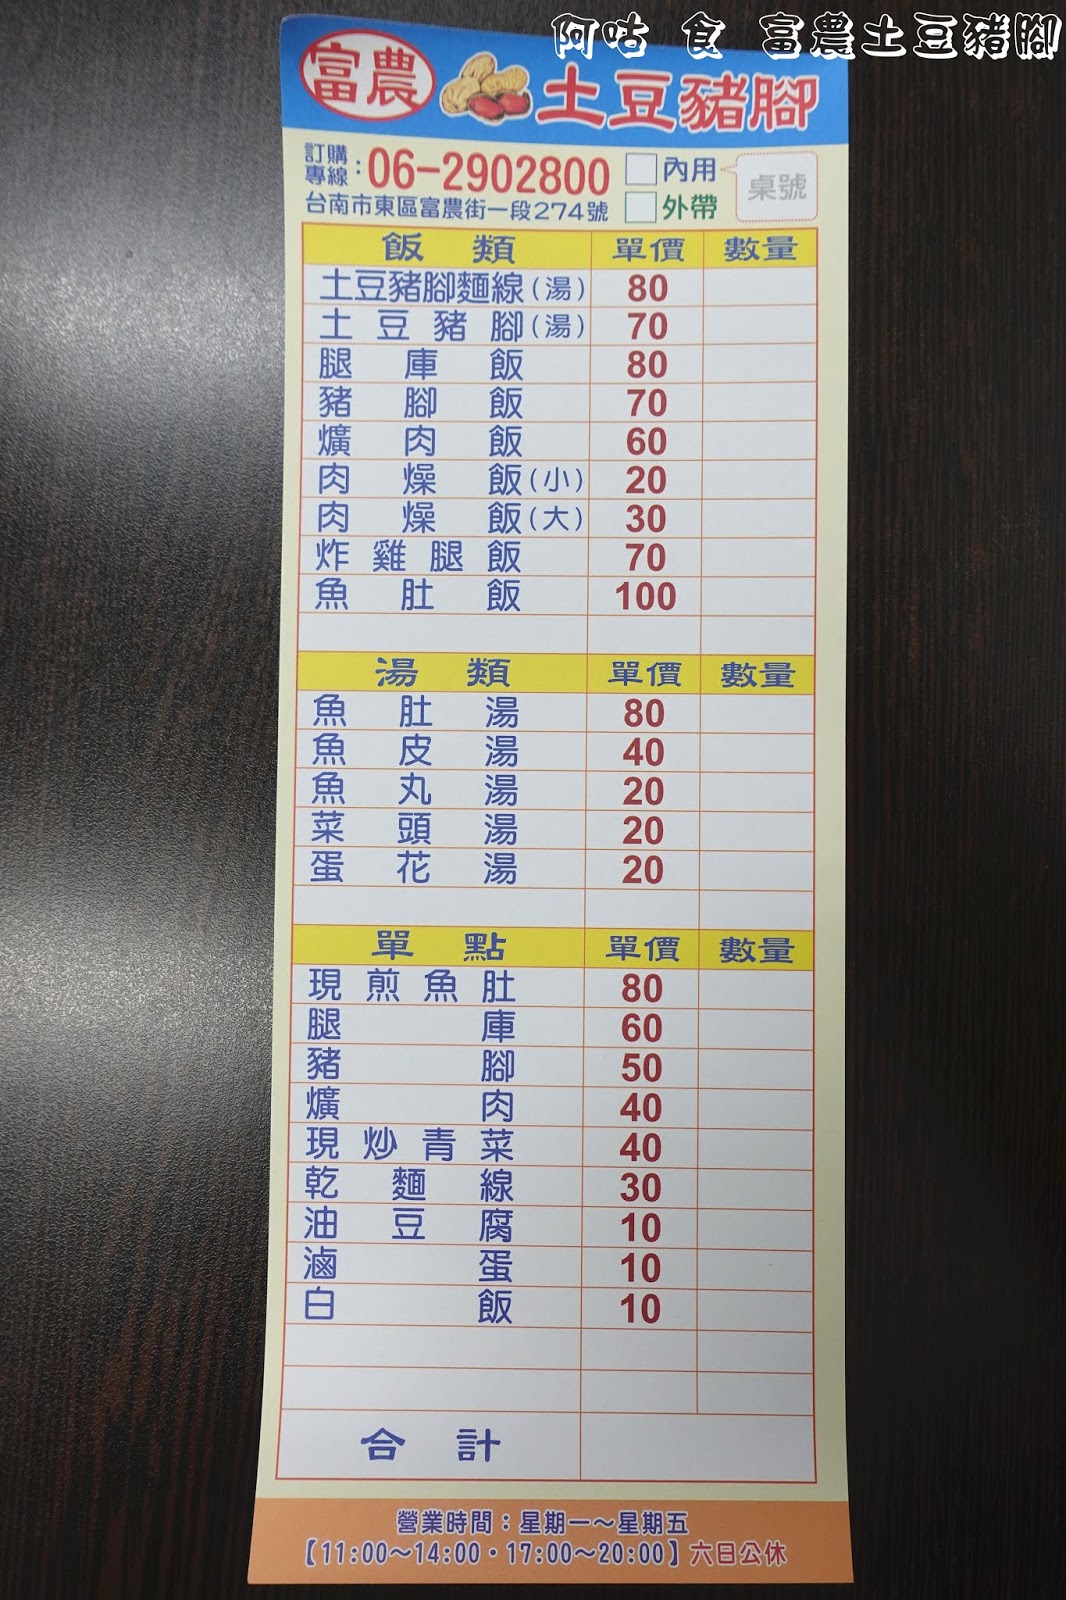 阿咕 食 富農土豆豬腳
富農 土豆豬腳
訂購專線：06-2902800 內用 桌號
台南市東區富農街一段274號 外帶
飯類 單價 數量
土豆豬腳麵線(湯) 80
土豆豬腳(湯) 70
腿庫飯 80
豬腳飯 70
爌肉飯 60
肉燥飯(小) 20
肉燥飯(大) 30
炸雞腿飯 70
魚肚飯 100
湯類 單價 數量
魚肚湯 80
魚皮湯 40
魚丸湯 20
菜頭湯 20
蛋花湯 20
單點 單價 數量
現煎魚肚 80
腿庫 60
豬腳 50
爌肉 40
現炒青菜 40
乾麵線 30
油豆腐 10
滷蛋 10
白飯 10
合計
營業時間：星期一～星期五
【11:00～14:00・17:00～20:00】六日公休